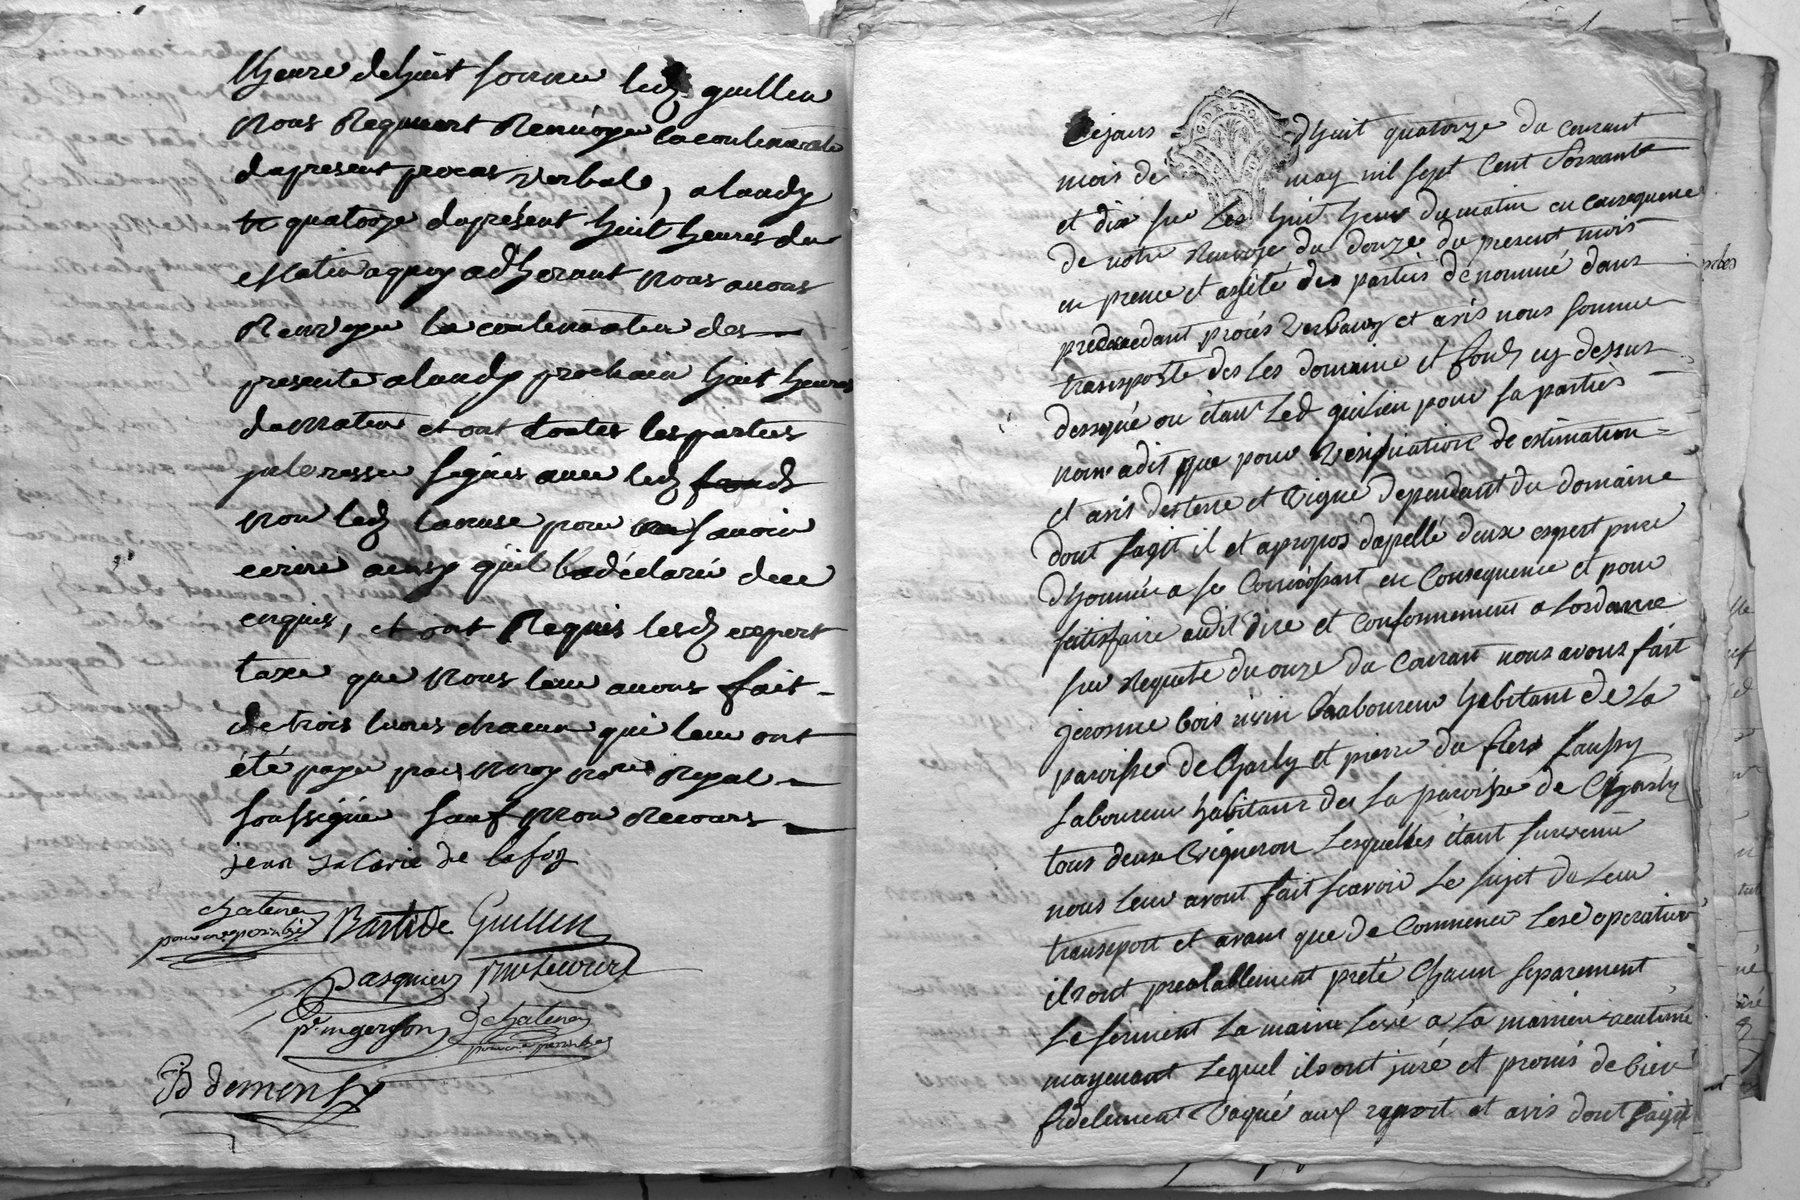 lheure de huit sonnee led guillin
nous Requiert Renvoyer la continuation
du present proces verbal, a landy
quatorze du présent huit heures du
Matin a quoy adherant nous avons
Renvoyer la continuation des
presente a landy prochain huit heures
du matin et ont toutes les parties
interesse signés avec led
non led pour savoir
ecrire ainsy qu'il a déclaré dece
enquis, et ont Requis lesd expert
taxe que nous leur avons fait
de trois livres chacun qui leur ont
été paye par moy Royal
soussigné sauf mon Recours
jean de lafoy
chatenay
Bastide Guillin
pasquier
pr. mgerson chatenay
Demonsy
G DE LYON
Cejour dhuit quatorze du courant
mois de may mil sept cent soixante
et dix sur les huit heur du matin en consequence
de notre Renvoye du douze du present mois
en presence et assité des parties dénommé dans
precedant procés verbaux et avis nous somme
transporté des les domaine et fond cy dessus
désigné ou étant led guilien pour sa partiés
nous a dit que pour vérification de estimation
et avis des terre et vigne dependant du domaine
dont sagit il et apropos dapellé deux expert prise
dhommée a se connoissant en Consequence et pour
satisfaire audit dire et conformement a lordance
sur Requete du onze du Courant nous avons fait
jerosme bois Laboureur habitant de La
paroisse de Charly et pierre du
Laboureur habitant de La paroisse de Charly
tous deux vigneron Lesquelles étant survenü
nous leur avont fait scavoir Le sujet de Leur
transport et avant que de Commencer Lese operation
ils ont prealablement preté Chacun separement
Le serment La main Levé a La maniere acutumé
moyenant Lequel ils ont juré et promis de bien
fidelement vaqué aux raport et avis dont sagit